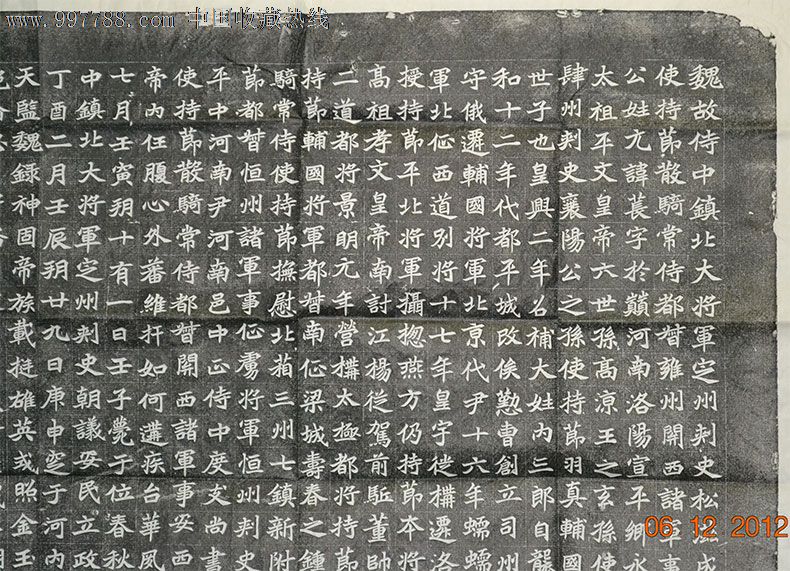 www.997788.com 中国收藏热线
魏故侍中鎮北大將軍定州刾史松滋成
使持節散騎常侍都督雍州開西諸軍事
公姓亢諱萇字於巔河南洛陽宣平鄉永
太祖平文皇帝六世孫高涼王之玄孫使
肆州刾史襄陽公之孫使持節羽真輔國
世子也皇興二年名補大姓內三郎自龔
和十二年代都平城改俟懃曹創立司州
守俄遷輔國將軍北京代尹十六年蠕蠕
軍北征西道別將十七年皇宇徙構遷洛
授持節平北將軍攝揔燕方仍持節本將
高祖孝文皇帝南討江揚從駕前駈董帥
二道都將景明元年營構太極都將持節
持節輔國將軍都督南征梁城壽春之鍾
騎常侍使持節撫慰北蕃三州七鎮新附
節都督恒州諸軍事征虜將軍恒州刾史
平中河南尹河南邑中正侍中度支尚書
使持節散騎常侍都督開西諸軍事安西
帝內任腹心外蕃維扞如何遘疾台華夙
七月壬寅玥十有一日壬子薨于位春秋
中鎮北大將軍定州刾史朝議安民立政
丁酉二月壬辰玥廿九日庚申窆于河內
天監魏録神固帝族載挺雄英或照金玉
06 12 2012